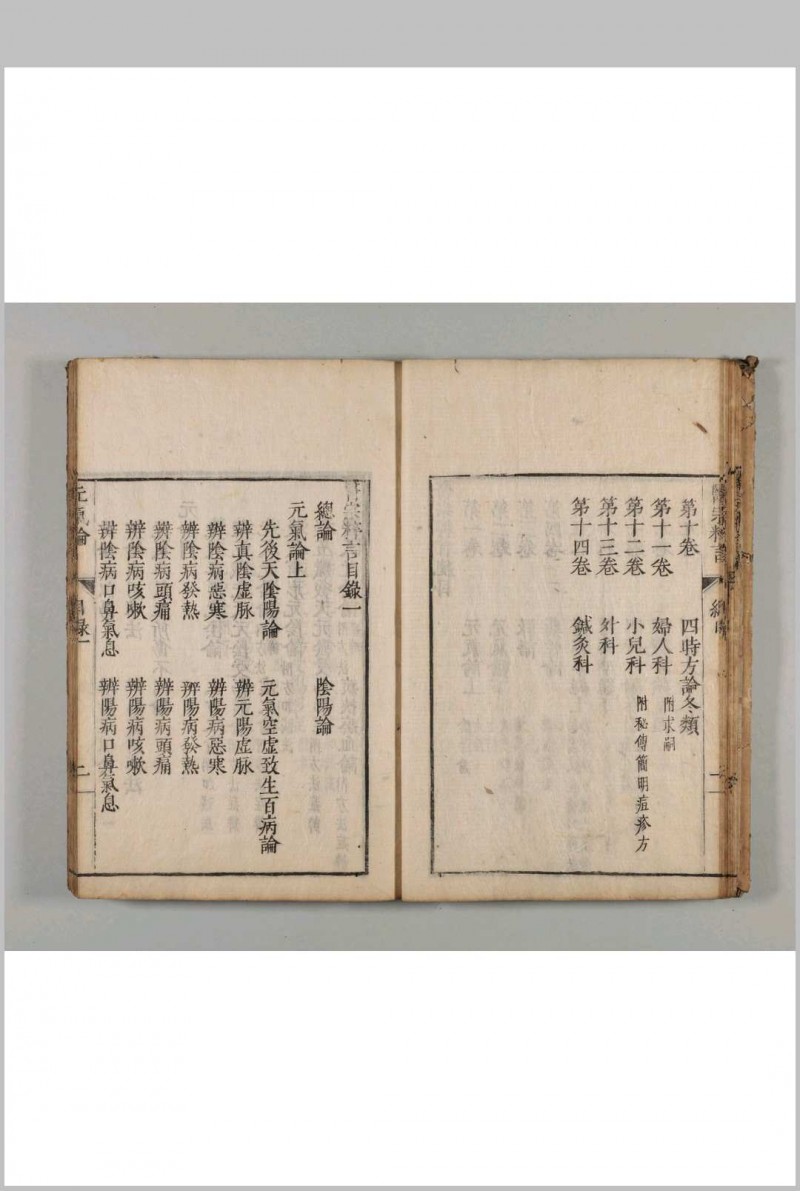 第十卷 四時方論冬類
第十一卷 婦人科 附求嗣
第十二卷 小兒科 附秘傳簡明痘疹方
第十三卷 外科
第十四卷 鍼灸科
宗粹言目錄一
總論 陰陽論
元氣論上
先後天陰陽論 元氣空虛致生百病論
辨真陰虛脉 辨元陽虛脉
辨陰病惡寒 辨陽病惡寒
辨陰病發熱 辨陽病發熱
辨陰病頭痛 辨陽病頭痛
辨陰病咳嗽 辨陽病咳嗽
辨陰病口鼻氣息 辨陽病口鼻氣息
元氣論 目錄一 二